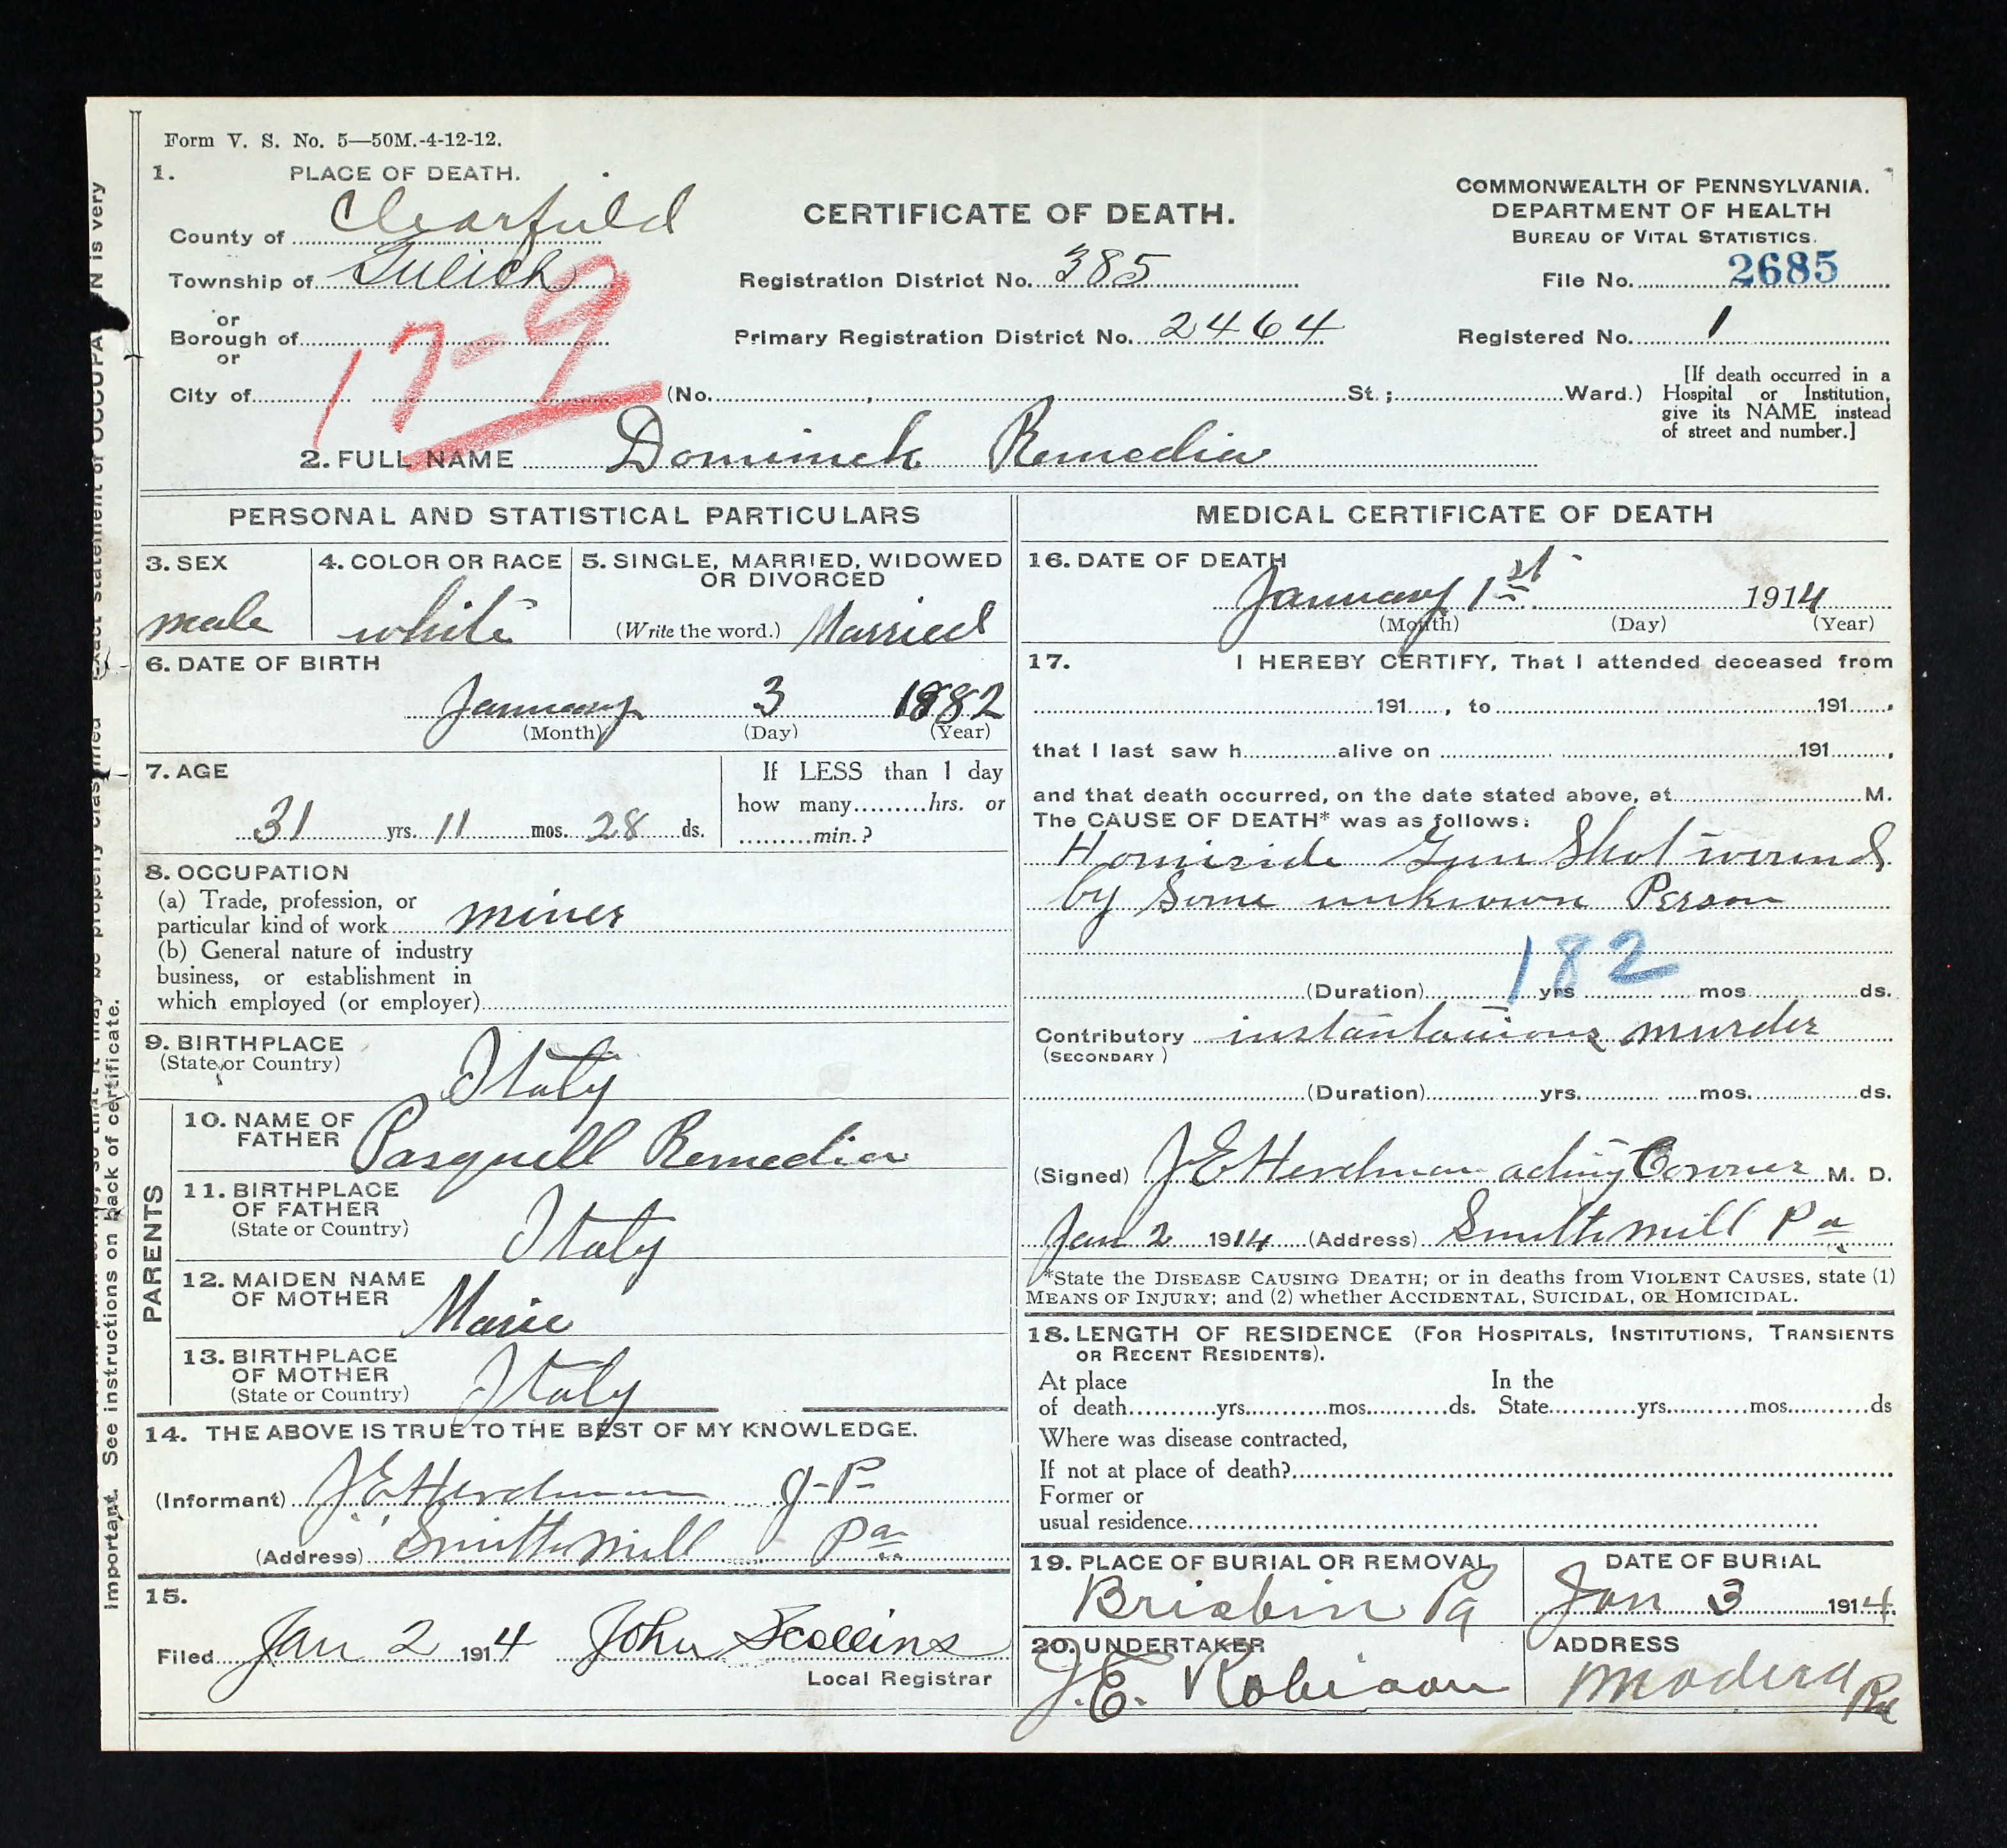 Form V. S. No. 5—50M.-4-12-12.
1. PLACE OF DEATH.
County of Clearfield
Township of Gulich
or
Borough of
or
City of
17-9
CERTIFICATE OF DEATH.
Registration District No. 385
Primary Registration District No. 2464
(No. , St.; Ward.)
COMMONWEALTH OF PENNSYLVANIA.
DEPARTMENT OF HEALTH
BUREAU OF VITAL STATISTICS.
File No. 2685
Registered No. 1
[If death occurred in a
Hospital or Institution,
give its NAME instead
of street and number.]
2. FULL NAME Dominick Remedia
PERSONAL AND STATISTICAL PARTICULARS
3. SEX
male
4. COLOR OR RACE
white
5. SINGLE, MARRIED, WIDOWED
OR DIVORCED
(Write the word.) Married
6. DATE OF BIRTH
January 3 1882
(Month) (Day) (Year)
7. AGE
31 yrs. 11 mos. 28 ds.
If LESS than 1 day
how many hrs. or
min.?
8. OCCUPATION
(a) Trade, profession, or
particular kind of work miner
(b) General nature of industry
business, or establishment in
which employed (or employer)
9. BIRTHPLACE
(State or Country)
Italy
PARENTS
10. NAME OF
FATHER
Pasquell Remedia
11. BIRTHPLACE
OF FATHER
(State or Country)
Italy
12. MAIDEN NAME
OF MOTHER
Marie
13. BIRTHPLACE
OF MOTHER
(State or Country)
Italy
14. THE ABOVE IS TRUE TO THE BEST OF MY KNOWLEDGE.
(Informant) J E Herdman J-P
(Address) Smithmill Pa
15.
Filed Jan 2 1914 John Scollins
Local Registrar
MEDICAL CERTIFICATE OF DEATH
16. DATE OF DEATH
January 1st 1914
(Month) (Day) (Year)
17. I HEREBY CERTIFY, That I attended deceased from
191 , to 191 ,
that I last saw h alive on 191 ,
and that death occurred, on the date stated above, at M.
The CAUSE OF DEATH* was as follows:
Homiside Gun Shot wound
by Some unknown Person
182
(Duration) yrs mos ds.
Contributory instantanious murder
(SECONDARY)
(Duration) yrs. mos. ds.
(Signed) J E Herdman acting Coroner M. D.
Jan 2 1914 (Address) Smithmill Pa
*State the DISEASE CAUSING DEATH; or in deaths from VIOLENT CAUSES, state (1)
MEANS OF INJURY; and (2) whether ACCIDENTAL, SUICIDAL, OR HOMICIDAL.
18. LENGTH OF RESIDENCE (FOR HOSPITALS, INSTITUTIONS, TRANSIENTS
OR RECENT RESIDENTS).
At place In the
of death yrs. mos. ds. State yrs. mos. ds
Where was disease contracted,
If not at place of death?
Former or
usual residence
19. PLACE OF BURIAL OR REMOVAL
Brisbin Pa
DATE OF BURIAL
Jan 3 1914
20. UNDERTAKER
J. E. Robison
ADDRESS
Madera Pa
important. See instructions on back of certificate.